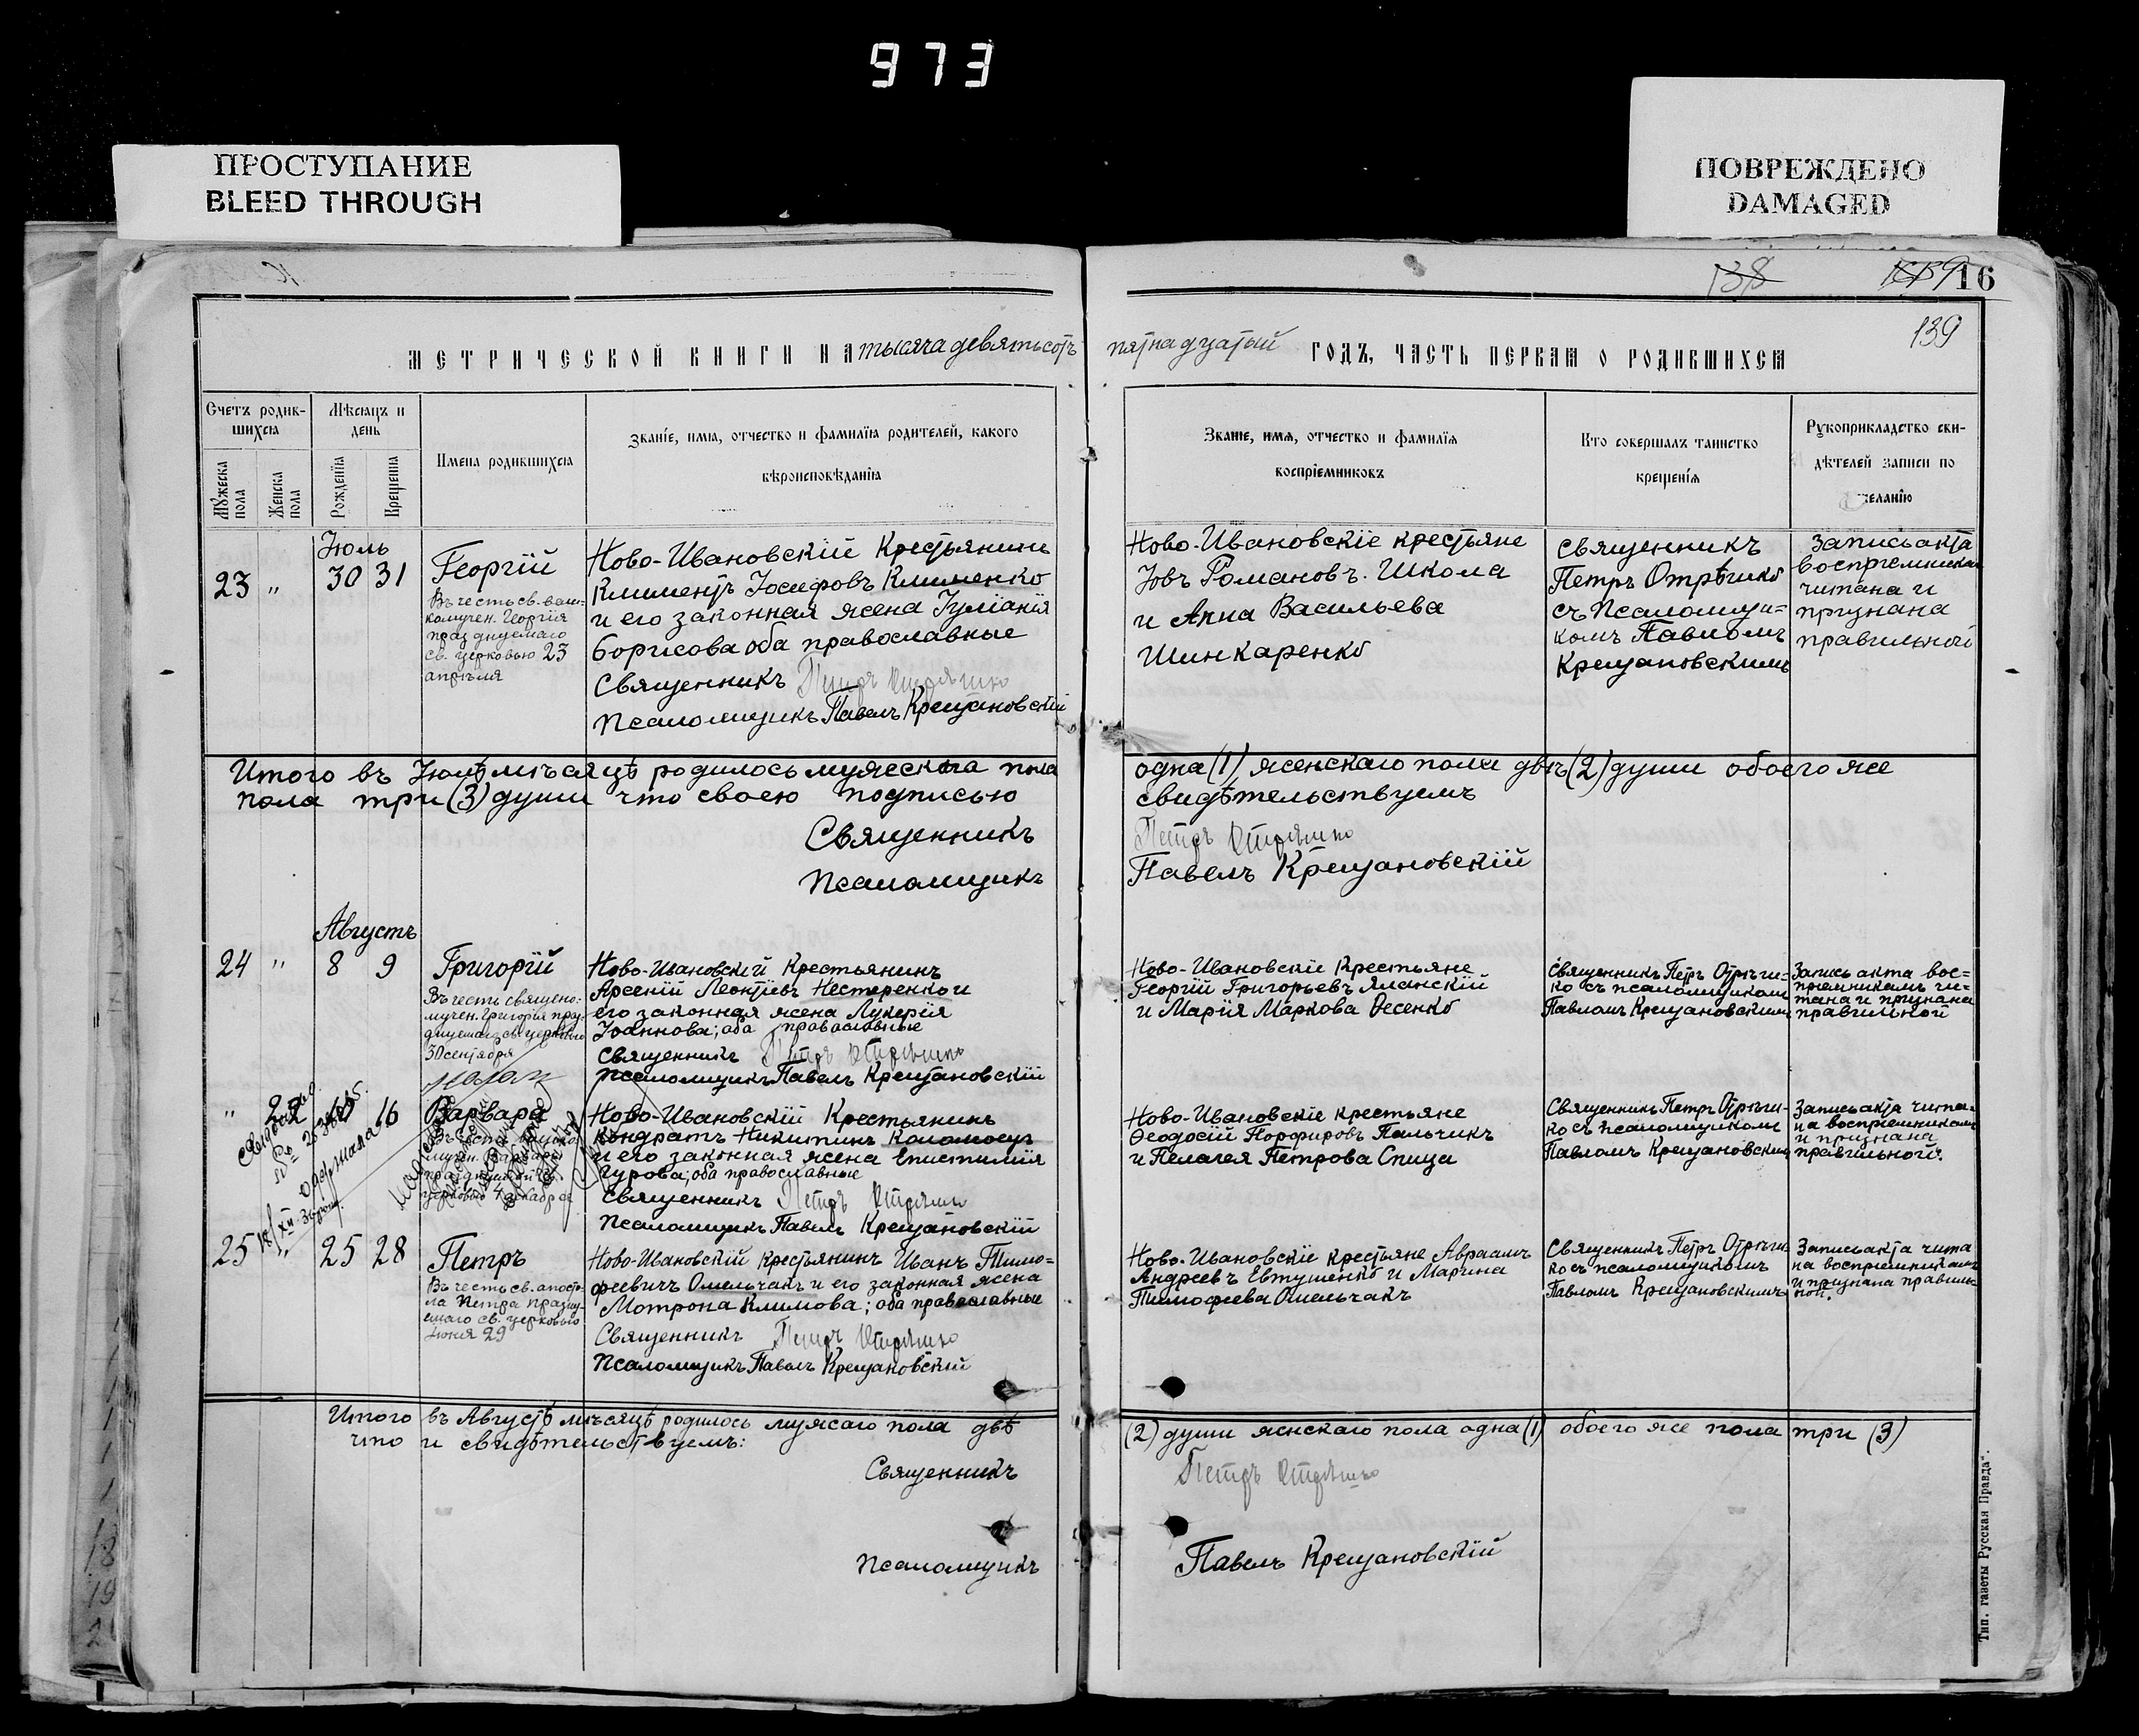 973
ПРОСТУПАНИЕ
BLEED THROUGH
ПОВРЕЖДЕНО
DAMAGED
138
16
139
МЕТРИЧЕСКОЙ КНИГИ НА тысяча девятьсотъ
пятнадцатый ГОДЪ, ЧАСТЬ ПЕРВАЯ О РОДИВШИХСЯ
Счетъ родив-
шихся
Мѣсяцъ и
день
Мужеска
пола
Женска
пола
Рожденія
Крещенія
Имена родившихся
Званіе, имя, отчество и фамилія родителей, какого
вѣроисповѣданія
Званіе, имя, отчество и фамилія
воспріемниковъ
Кто совершалъ таинство
крещенія
Рукоприкладство сви-
дѣтелей записи по
желанію
Іюль
23 " 30 31
Георгій
Въ честь св. вели-
комучен. Георгія
празднуемаго
св. церковью 23
апрѣля
Ново-Ивановскій Крестьянинъ
Климентъ Іосифовъ Клименко
и его законная жена Іуліанія
Борисова оба православные
Священникъ Петръ Отрѣшко
Псаломщикъ Павелъ Крещановскій
Ново-Ивановскіе крестьяне
Іовъ Романовъ. Школа
и Анна Васильева
Шинкаренко
Священникъ
Петръ Отрѣшко
съ Псаломщи-
комъ Павломъ
Крещановскимъ
Запись акта
воспріемникам
читана и
признана
правильной
Итого въ Іюлѣ мѣсяцѣ родилось мужескаго пола
пола три (3) души что своею подписью
Священникъ
Псаломщикъ
одна (1) женскаго пола двѣ (2) души обоего же
свидѣтельствуемъ
Петръ Отрѣшко
Павелъ Крещановскій
Августъ
24 " 8 9
Григорій
Въ честь священо-
мучен. Григорія праз-
днуемаго св. церковью
30 сентября
Ново-Ивановскій Крестьянинъ
Арсеній Леонтіевъ Нестеренко и
его законная жена Лукерія
Іоаннова; оба православные
Священникъ Петръ Отрѣшко
Псаломщикъ Павелъ Крещановскій
Ново-Ивановскіе Крестьяне
Георгій Григорьевъ Яланскій
и Марія Маркова Десенко
Священникъ Петръ Отрѣш-
ко съ псаломщикомъ
Павломъ Крещановскимъ
Запись акта вос-
пріемникамъ чи-
тана и признана
правильной
" 22 16
Варвара
Ново-Ивановскій Крестьянинъ
Кондратъ Никитинъ Коломоецъ
и его законная жена Епистимія
Гурова; оба православные
Священникъ Петръ Отрѣшко
Псаломщикъ Павелъ Крещановскій
Ново-Ивановскіе крестьяне
Ѳеодосій Порфировъ Пальчикъ
и Пелагея Петрова Спица
Священникъ Петръ Отрѣш-
ко съ псаломщикомъ
Павломъ Крещановским
Запись акта чита-
на воспріемникамъ
и признана
правильной.
25 " 25 28
Петръ
Въ честь св. апосто-
ла Петра праздну-
емаго св. церковью
іюня 29
Ново-Ивановскій крестьянинъ Иванъ Тимо-
феевичъ Омельчакъ и его законная жена
Мотрона Климова; оба православные
Священникъ Петръ Отрѣшко
Псаломщикъ Павелъ Крещановскій
Ново-Ивановскіе крестьяне Авраамъ
Андреевъ Евтушенко и Марина
Тимофеева Омельчакъ
Священникъ Петръ Отрѣш-
ко съ псаломщикомъ
Павломъ Крещановскимъ
Запись акта чита
на воспріемникамъ
и признана правиль
ной.
Итого въ Августѣ мѣсяцѣ родилось мужсаго пола двѣ
что и свидѣтельствуемъ:
Священникъ
Псаломщикъ
(2) души женскаго пола одна (1) обоего же пола три (3)
Петръ Отрѣшко
Павелъ Крещановскій
Тип. газеты „Русская Правда“.